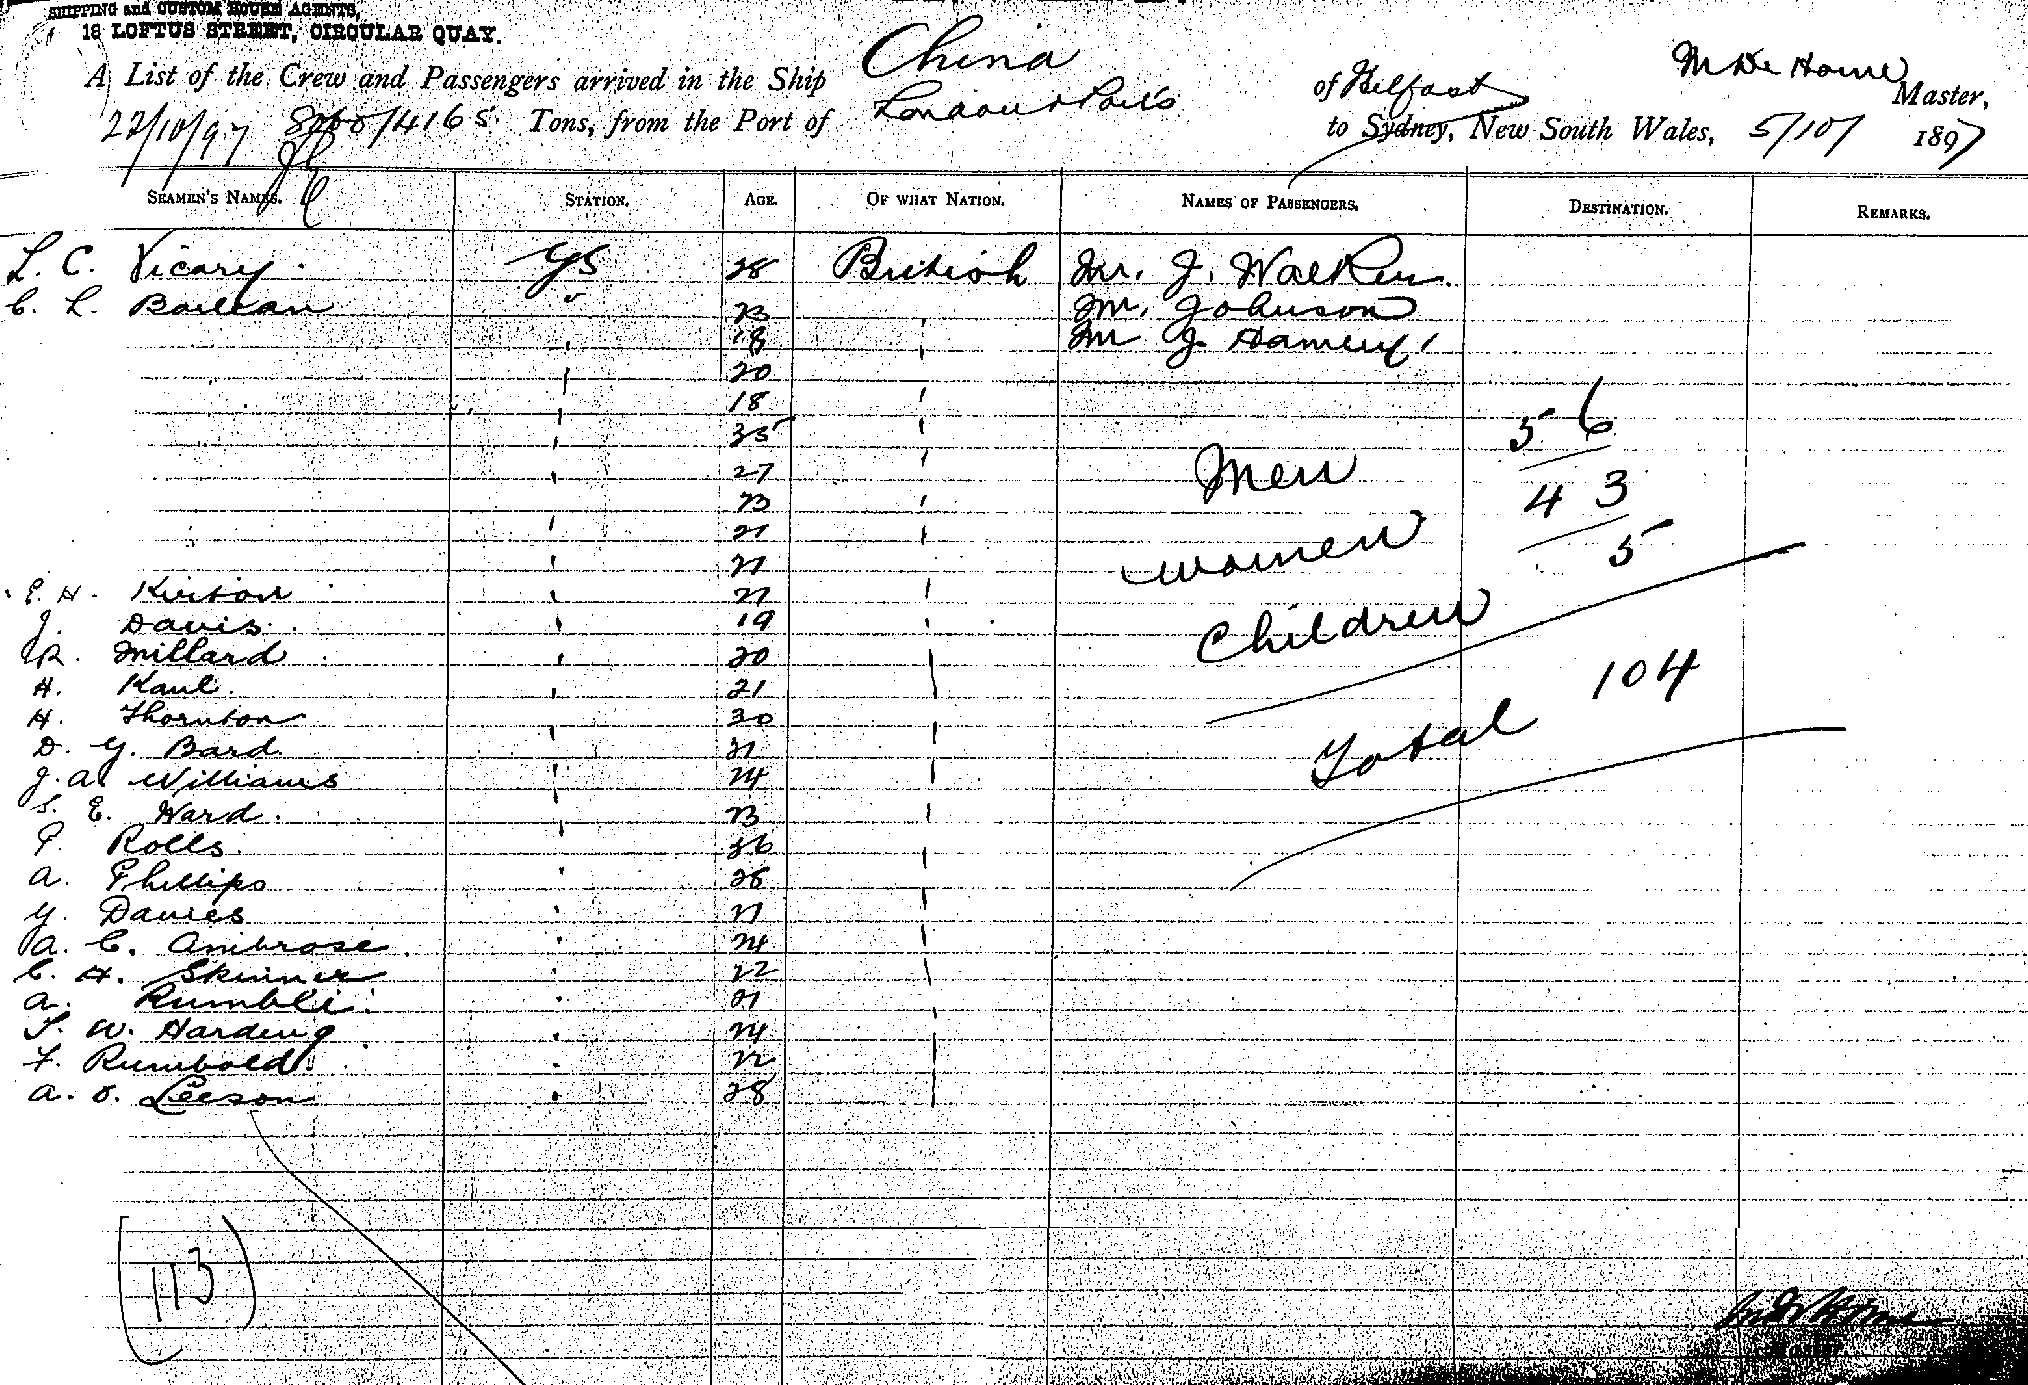 SHIPPING and CUSTOM HOUSE AGENTS,
18 LOFTUS STREET, CIRCULAR QUAY.
A List of the Crew and Passengers arrived in the Ship China of Belfast Master,
22/10/97 Tons, from the Port of London & Ports to Sydney, New South Wales, 5/10/ 1897
SEAMEN'S NAMES. STATION. AGE. OF WHAT NATION. NAMES OF PASSENGERS. DESTINATION. REMARKS.
L. C. Vicary GS 28 British Mr. J. Walker
C. L. 23 Mr. Johnson
18 Mr J
20
18
35
27
23
21
21
E. H. 21
J. Davis 19
R. Millard 20
H. 21
H. Thornton 30
D. G. Bard 21
J. A. Williams 24
S. E. Ward 23
P. Rolls 36
A. Phillips 28
G. Davies 21
A. C. Ambrose 24
C. H. Skinner 22
A. 21
T. W. Harding 24
F. Rumbold 22
A. O. Leeson 28
Men 56
Women 43
Children 5
Total 104
(113)